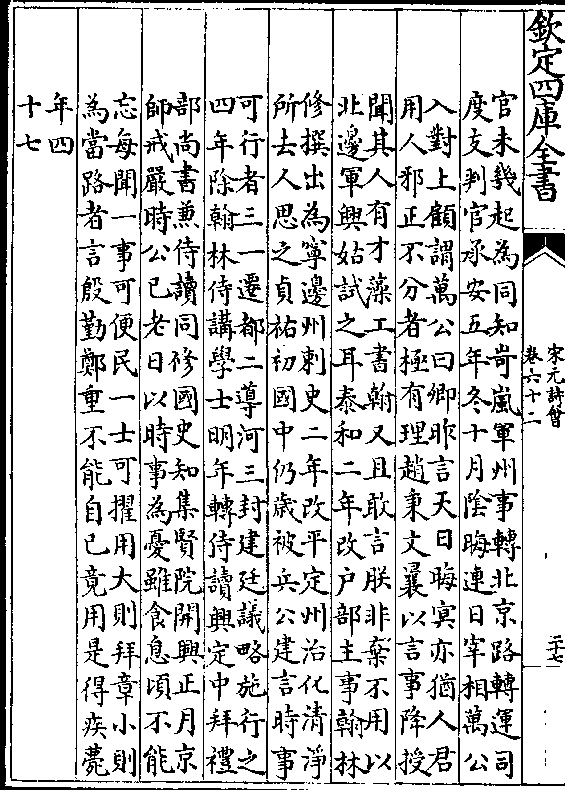 欽定四庫全書
宋元詩會
卷六十二
二十七
官未幾起為同知岢嵐軍州事轉北京路轉運司
度支判官承安五年冬十月陰晦連日宰相萬公
入對上顧謂萬公曰卿昨言天日晦冥亦猶人君
用人邪正不分者極有理趙秉文曩以言事降授
聞其人有才藻工書翰又且敢言朕非棄不用以
北邊軍興姑試之耳泰和二年改户部主事翰林
修撰出為寧邊州刺史二年改平定州治化清淨
所去人思之貞祐初國中仍歲被兵公建言時事
可行者三一遷都二導河三封建廷議略施行之
四年除翰林侍講學士明年轉侍讀興定中拜禮
部尚書兼侍讀同修國史知集賢院開興正月京
師戒嚴時公已老日以時事為憂雖食息頃不能
忘每聞一事可便民一士可擢用大則拜章小則
為當路者言殷勤鄭重不能自已竟用是得疾薨
年四
十七